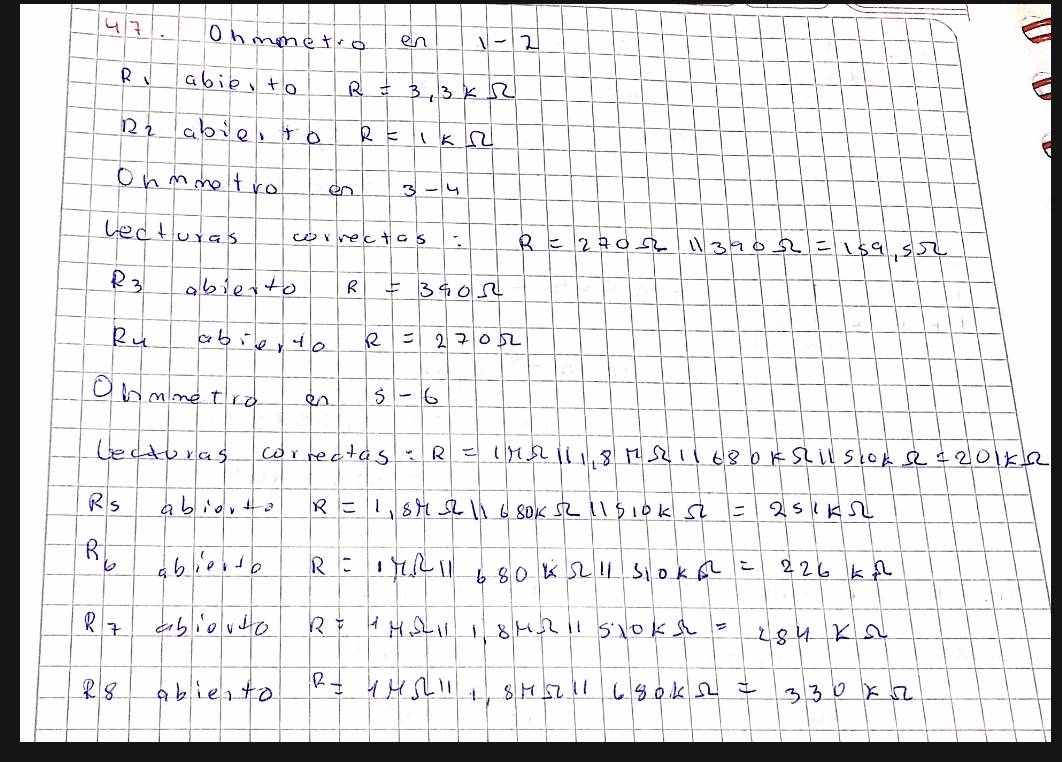 47. Ohmmetro en 1-2
R1 abierto R = 3,3kΩ
R2 abierto R = 1kΩ
Ohmmetro en 3-4
Lecturas correctas: R = 270Ω || 390Ω = 159,5Ω
R3 abierto R = 390Ω
R4 abierto R = 270Ω
Ohmmetro en 5-6
Lecturas correctas: R = 1MΩ || 1,8MΩ || 680kΩ || 510kΩ = 201kΩ
R5 abierto R = 1,8MΩ || 680kΩ || 510kΩ = 251kΩ
R6 abierto R = 1MΩ || 680kΩ || 510kΩ = 226kΩ
R7 abierto R = 1MΩ || 1,8MΩ || 510kΩ = 284kΩ
R8 abierto R = 1MΩ || 1,8MΩ || 680kΩ = 330kΩ